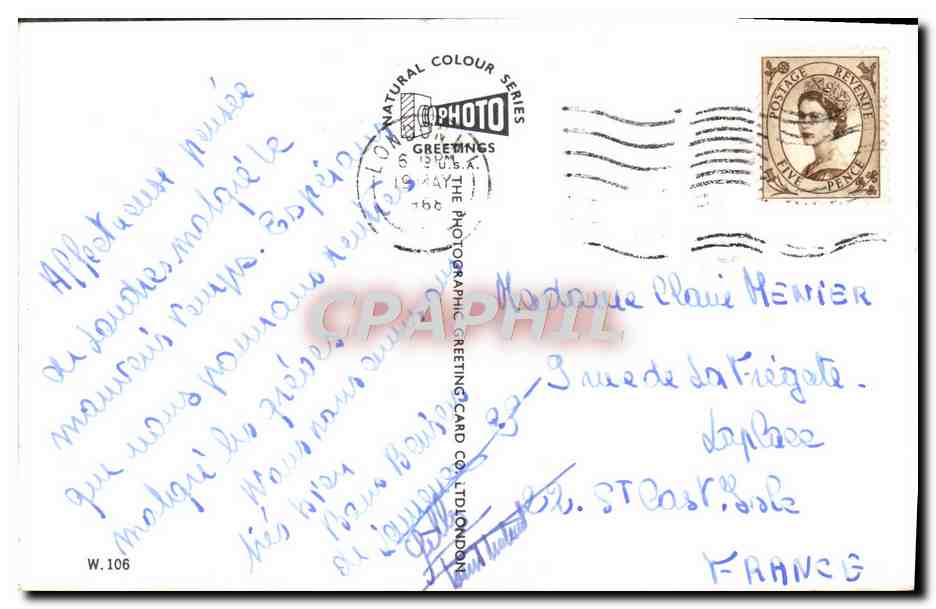 Affectueuse pensée
de Londres malgré le
mauvais temps. Espérons
que nous pourrons rentrer
malgré les grèves
Nous nous amusons
très bien
Bons Baisers
de
NATURAL COLOUR SERIES
PHOTO
GREETINGS
U.S.A.
LONDON
6 PM
19 MAY
1968
THE PHOTOGRAPHIC GREETING CARD CO. LTD LONDON
POSTAGE REVENUE
FIVE PENCE
Madame Claire MENIER
9 rue de La Frégate.
Laplace
22. St Cast. Isle
FRANCE
W.106
CPAPHIL